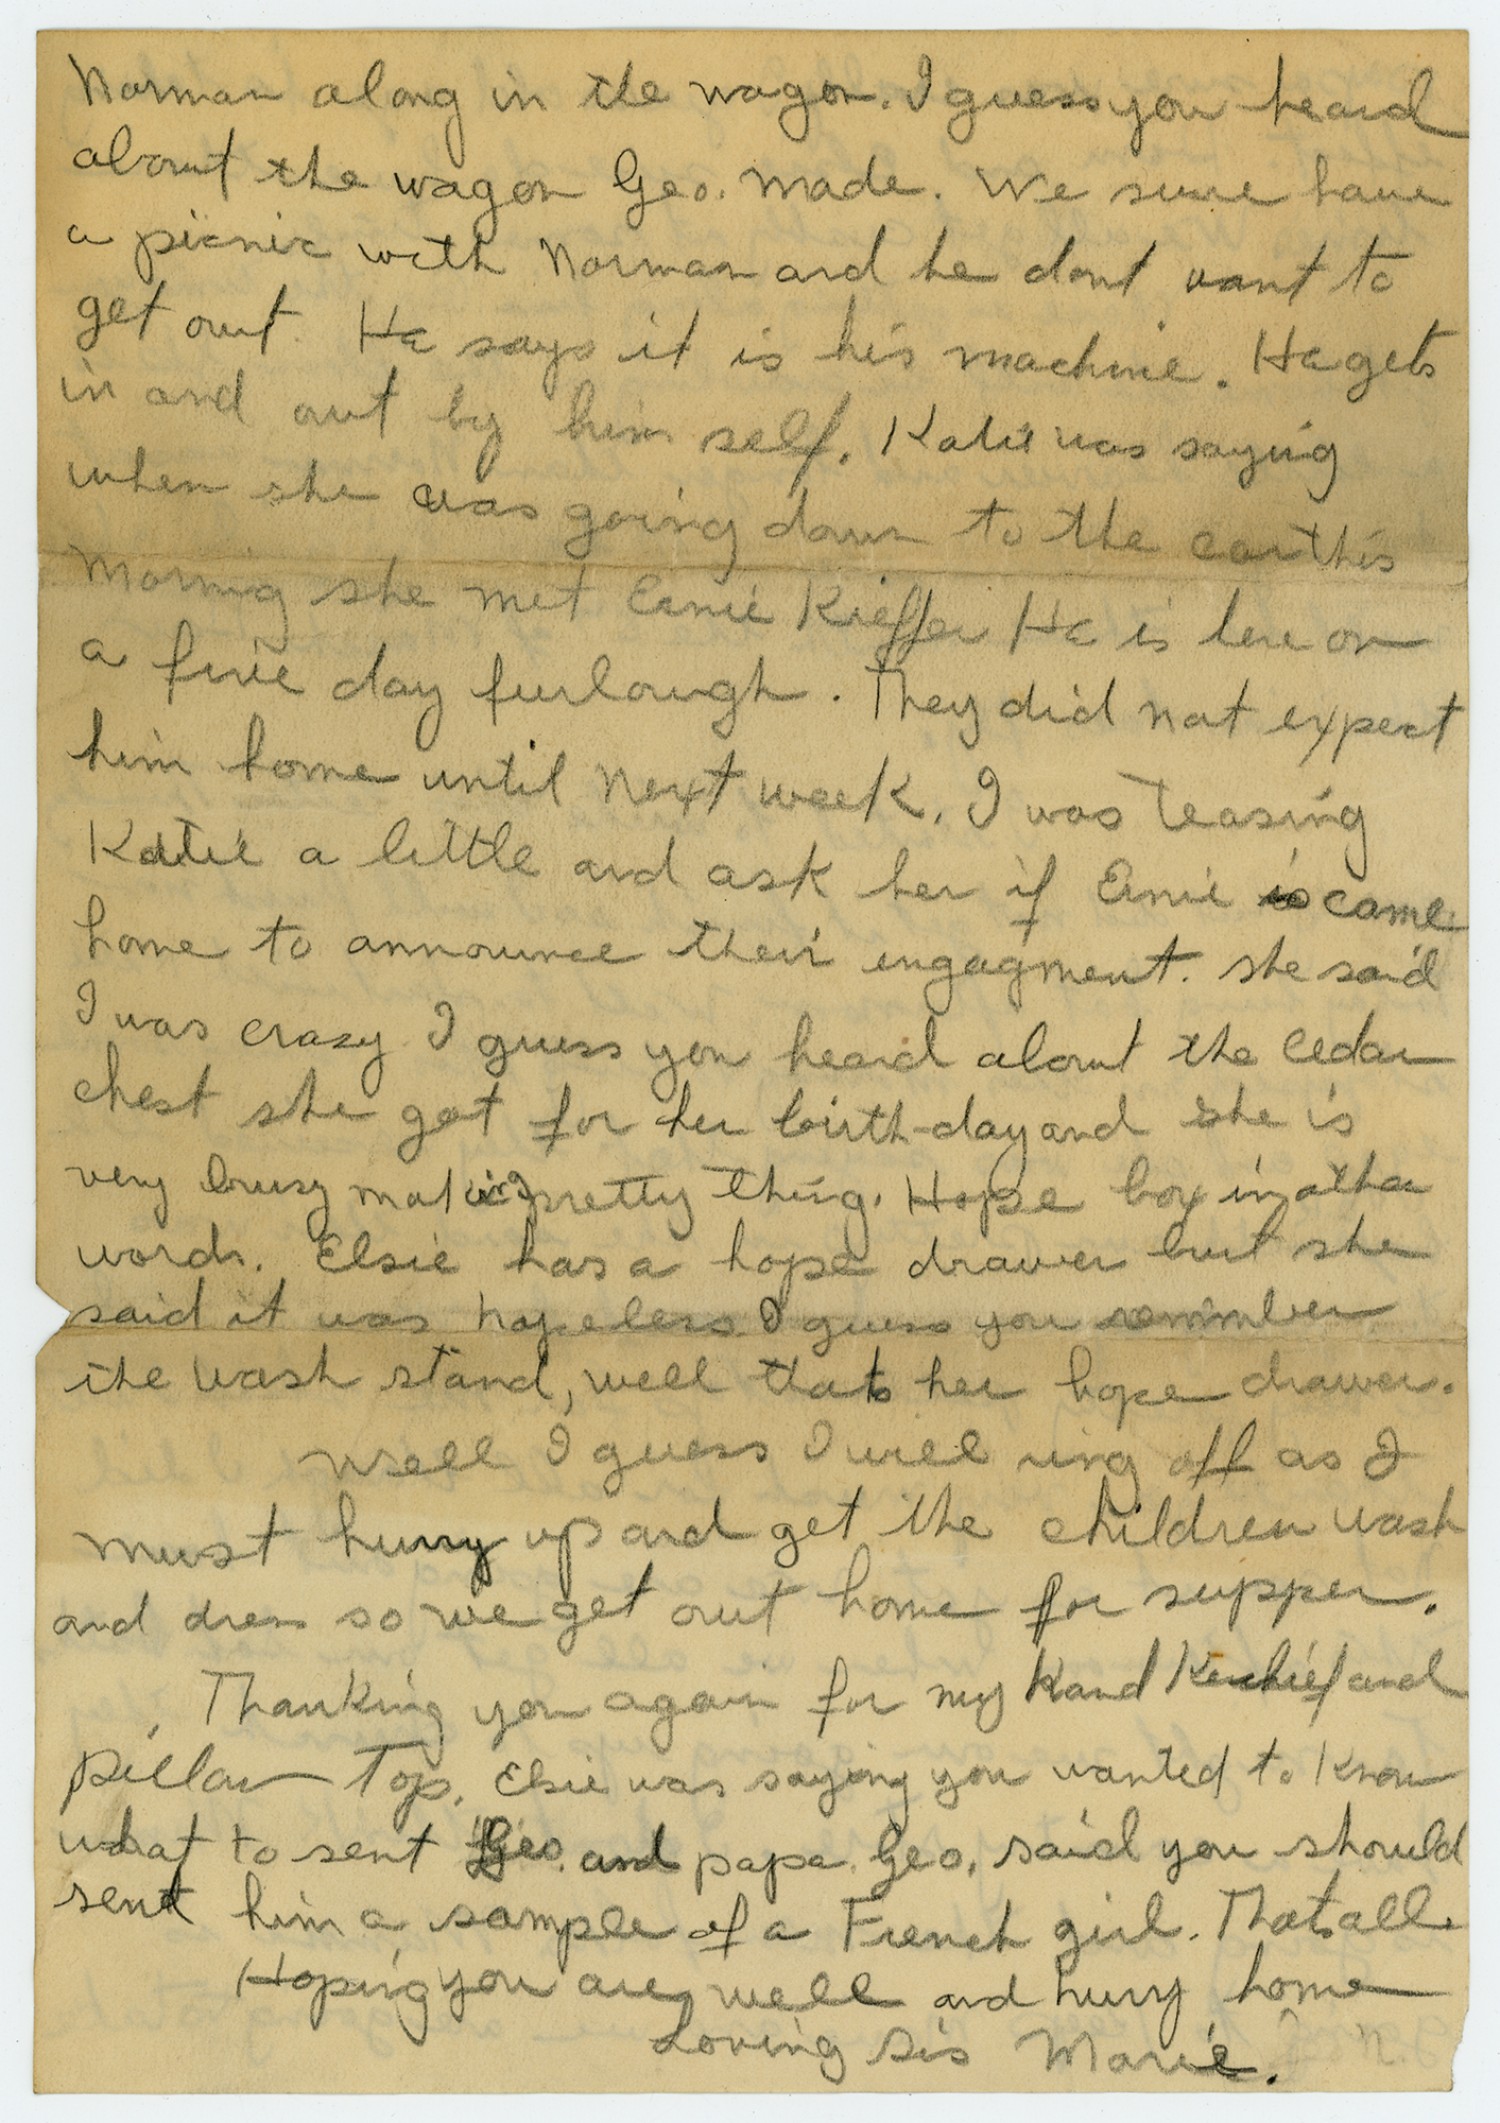 Norman along in the wagon. I guess you heard
about the wagon Geo. made. We sure have
a picnic with Norman and he dont want to
get out. He says it is his machine. He gets
in and out by him self. Katie was saying
when she was going down to the car this
morning she met Ernie Kieffer He is here on
a five day furlough. They did not expect
him home until next week. I was teasing
Katie a little and ask her if Ernie came
home to announce their engagment. She said
I was crazy I guess you heard about the cedar
chest she got for her birth-day and she is
very busy making pretty thing. Hope box in other
words. Elsie has a hope drawer but she
said it was hopeless. I guess you remimber
the wash stand, well thats her hope drawer.
Well I guess I will ring off as I
must hurry up and get the children wash
and dress so we get out home for supper.
Thanking you again for my hand Kerchief and
pillow Top. Elsie was saying you wanted to know
what to sent Geo. and papa. Geo. said you should
sent him a sample of a French girl. Thats all.
Hoping you are well and hurry home
Loving Sis Marie.